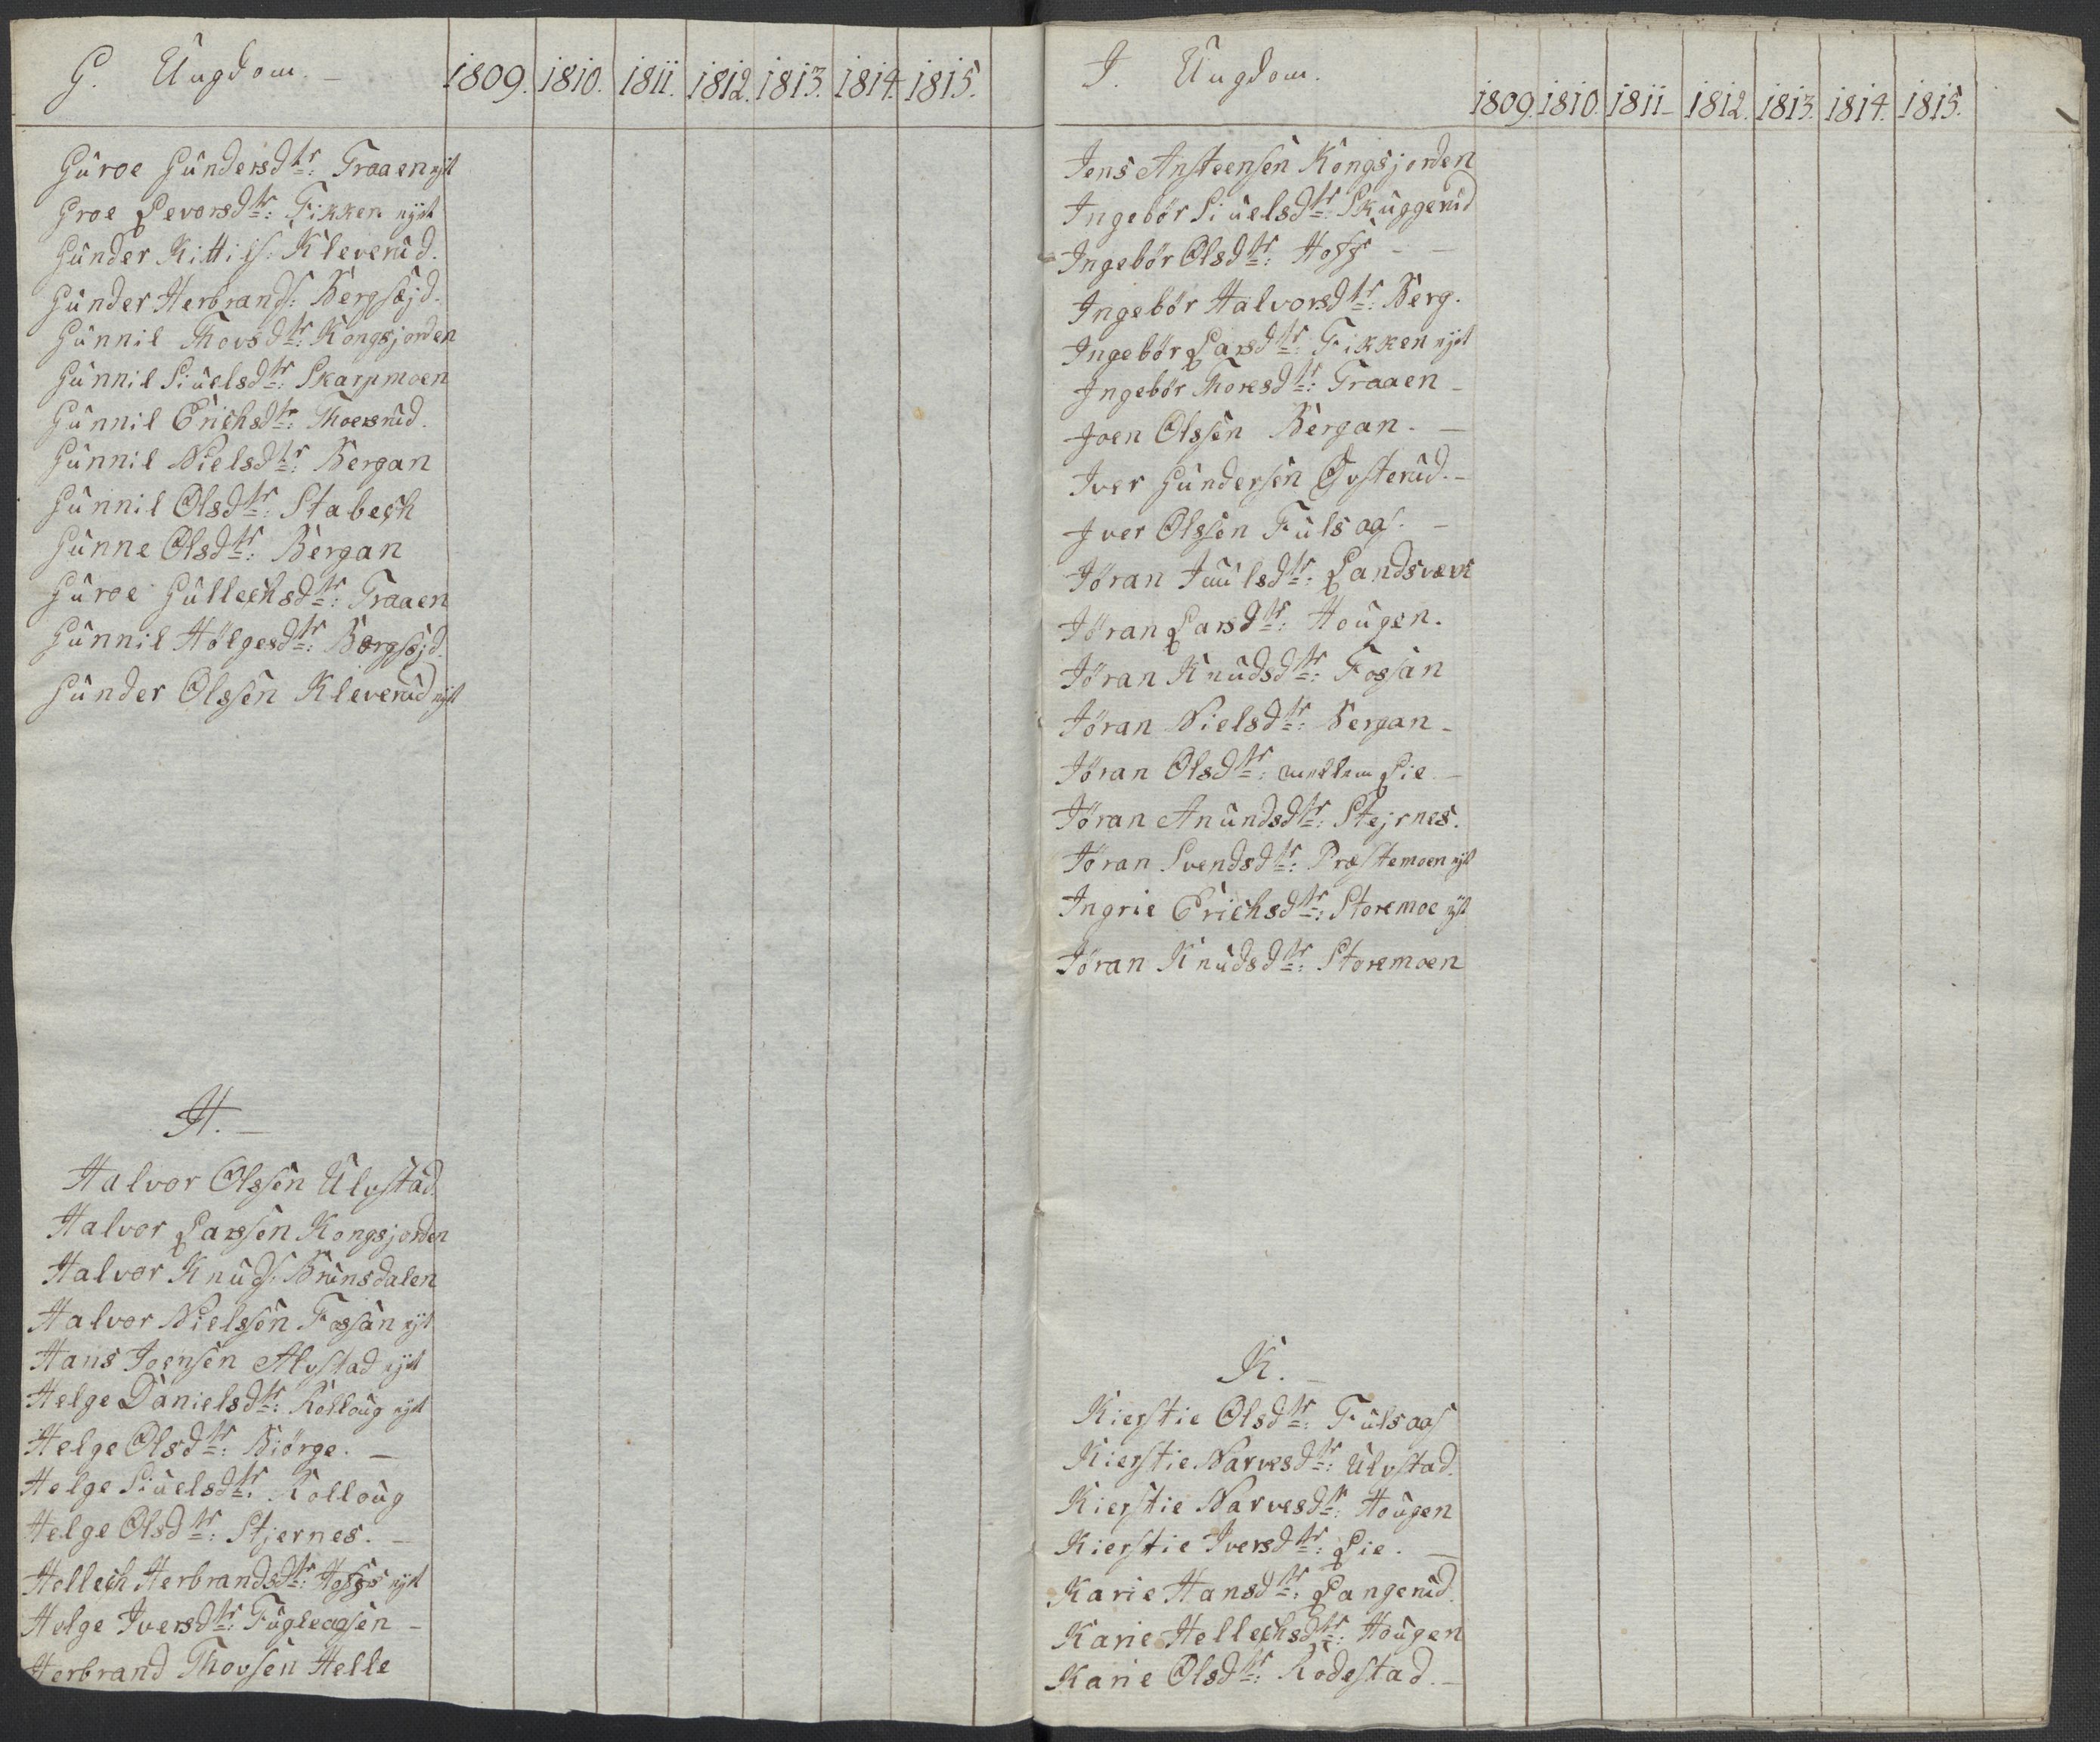 G. Ungdom. –
1809. 1810. 1811. 1812. 1813. 1814. 1815.
Guroe Gundersdtr: Traaen nyt
Groe Levorsdtr: Fikken nyt
Gunder Kittils: Kleverud.
Gunder Herbrands: Bergsejd.
Gunnil Thovsdtr: Kongsjorden
Gunnil Siuelsdtr: Skarpmoen
Gunnil Erichsdtr: Thoersrud.
Gunnil Nielsdtr: Bergan
Gunnil Olsdtr: Stabech
Gunne Olsdtr: Bergan
Guroe Gullechsdtr: Traaen
Gunnil Hølgesdtr: Bergsejd.
Gunder Olssen Kleverud nyt
H. –
Halvor Olssen Ulvstad.
Halvor Larssen Kongsjorden
Halvor Knuds: Brunsdalen
Halvor Nielssen Fossan nyt
Hans Joensen Alvstad nyt
Helge Danielsdtr: Rolloug nyt
Helge Olsdtr: Biørge. –
Helge Siuelsdtr: Rolloug
Helge Olsdtr: Stjernes. –
Hellech Herbrandsdtr: nyt
Helge Iversdtr: Fugleaasen –
Herbrand Thovsen Helle
I. Ungdom.
1809. 1810. 1811– 1812. 1813. 1814. 1815.
Jens Ansteensen Kongsjorden
Ingebor Siuelsdtr: Skuggerud
Ingebør Olsdtr: Hoff – –
Ingebør Halvorsdtr: Berg.
Ingebør Larsdtr: Fikken nyt
Ingebør Thoresdtr: Traaen –
Joen Olssen Bergan. –
Iver Gundersen Østerud. –
Iver Olssen Fulsaas. –
Jøran Juulsdtr: Landsværk
Jøran Larsdtr: Hougen.
Jøran Knudsdtr: Fossan
Jøran Nielsdtr: Bergan –
Jøran Olsdtr: mellem Lie –
Jøran Anundsdtr: Stejrnes.
Jøran Svendsdtr: Præstemoen nyt
Ingrie Erichsdtr: Storemoe nyt
Jøran Knudsdtr: Storemoen
K. –
Kierstie Olsdtr: Fulsaas
Kierstie Narvesdtr: Ulvstad.
Kierstie Narvesdtr: Hougen
Kierstie Iversdtr: Lie. –
Karie Hansdtr: Langerud.
Karie Hellechsdtr: Hougen
Karie Olsdtr: Rodestad. –